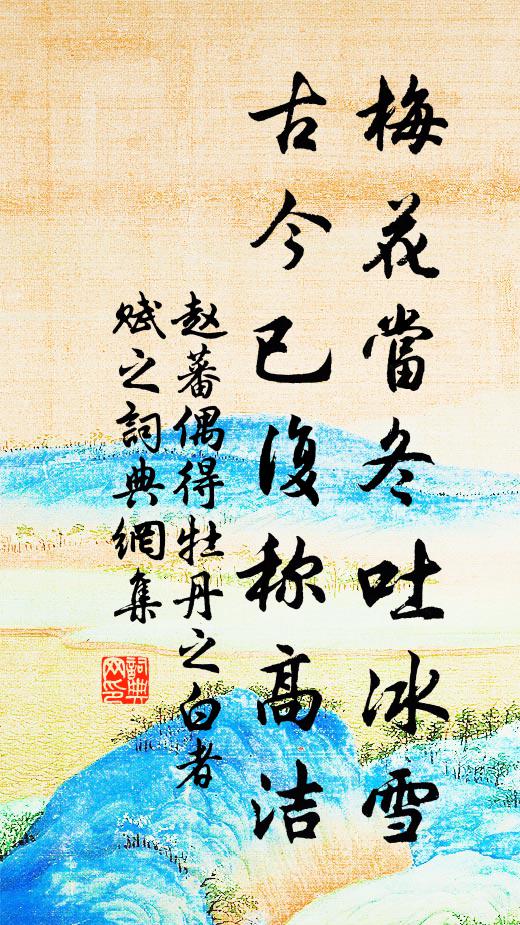 梅花當冬吐冰雪
古今已復称高洁
赵蕃偶得牡丹之白者
赋之詞典網集
詞典網印